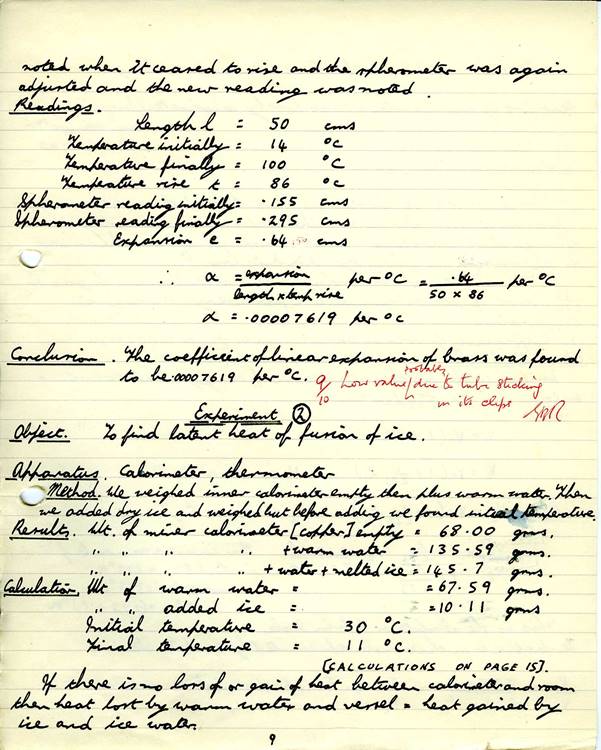 noted when it ceased to rise and the spherometer was again
adjusted and the new reading was noted.
Readings.
Length l = 50 cms
Temperature initially = 14 °C
Temperature finally = 100 °C
Temperature rise t = 86 °C
Spherometer reading initially = ·155 cms
Spherometer reading finally = ·295 cms
Expansion e = ·64 cms
∴ α = expansion / length x temp rise per °C = ·64 / 50 x 86 per °C
α = ·00007619 per °C
Conclusion. The coefficient of linear expansion of brass was found
to be ·00007619 per °C. 9/10 Low value probably due to tube sticking
in its clips
Experiment 2
Object. To find latent heat of fusion of ice.
Apparatus. Calorimeter, thermometer
Method. We weighed inner calorimeter empty then plus warm water. Then
we added dry ice and weighed but before adding we found initial temperature.
Results. Wt. of inner calorimeter [copper] empty = 68·00 gms.
" " " " + warm water = 135·59 gms.
" " " " + water + melted ice = 145·7 gms.
Calculation. Wt of warm water = = 67·59 gms.
" " added ice = = 10·11 gms
Initial temperature = 30 °C.
Final temperature = 11 °C.
[CALCULATIONS ON PAGE 15].
If there is no loss of or gain of heat between calorimeter and room
then heat lost by warm water and vessel = heat gained by
ice and ice water.
9